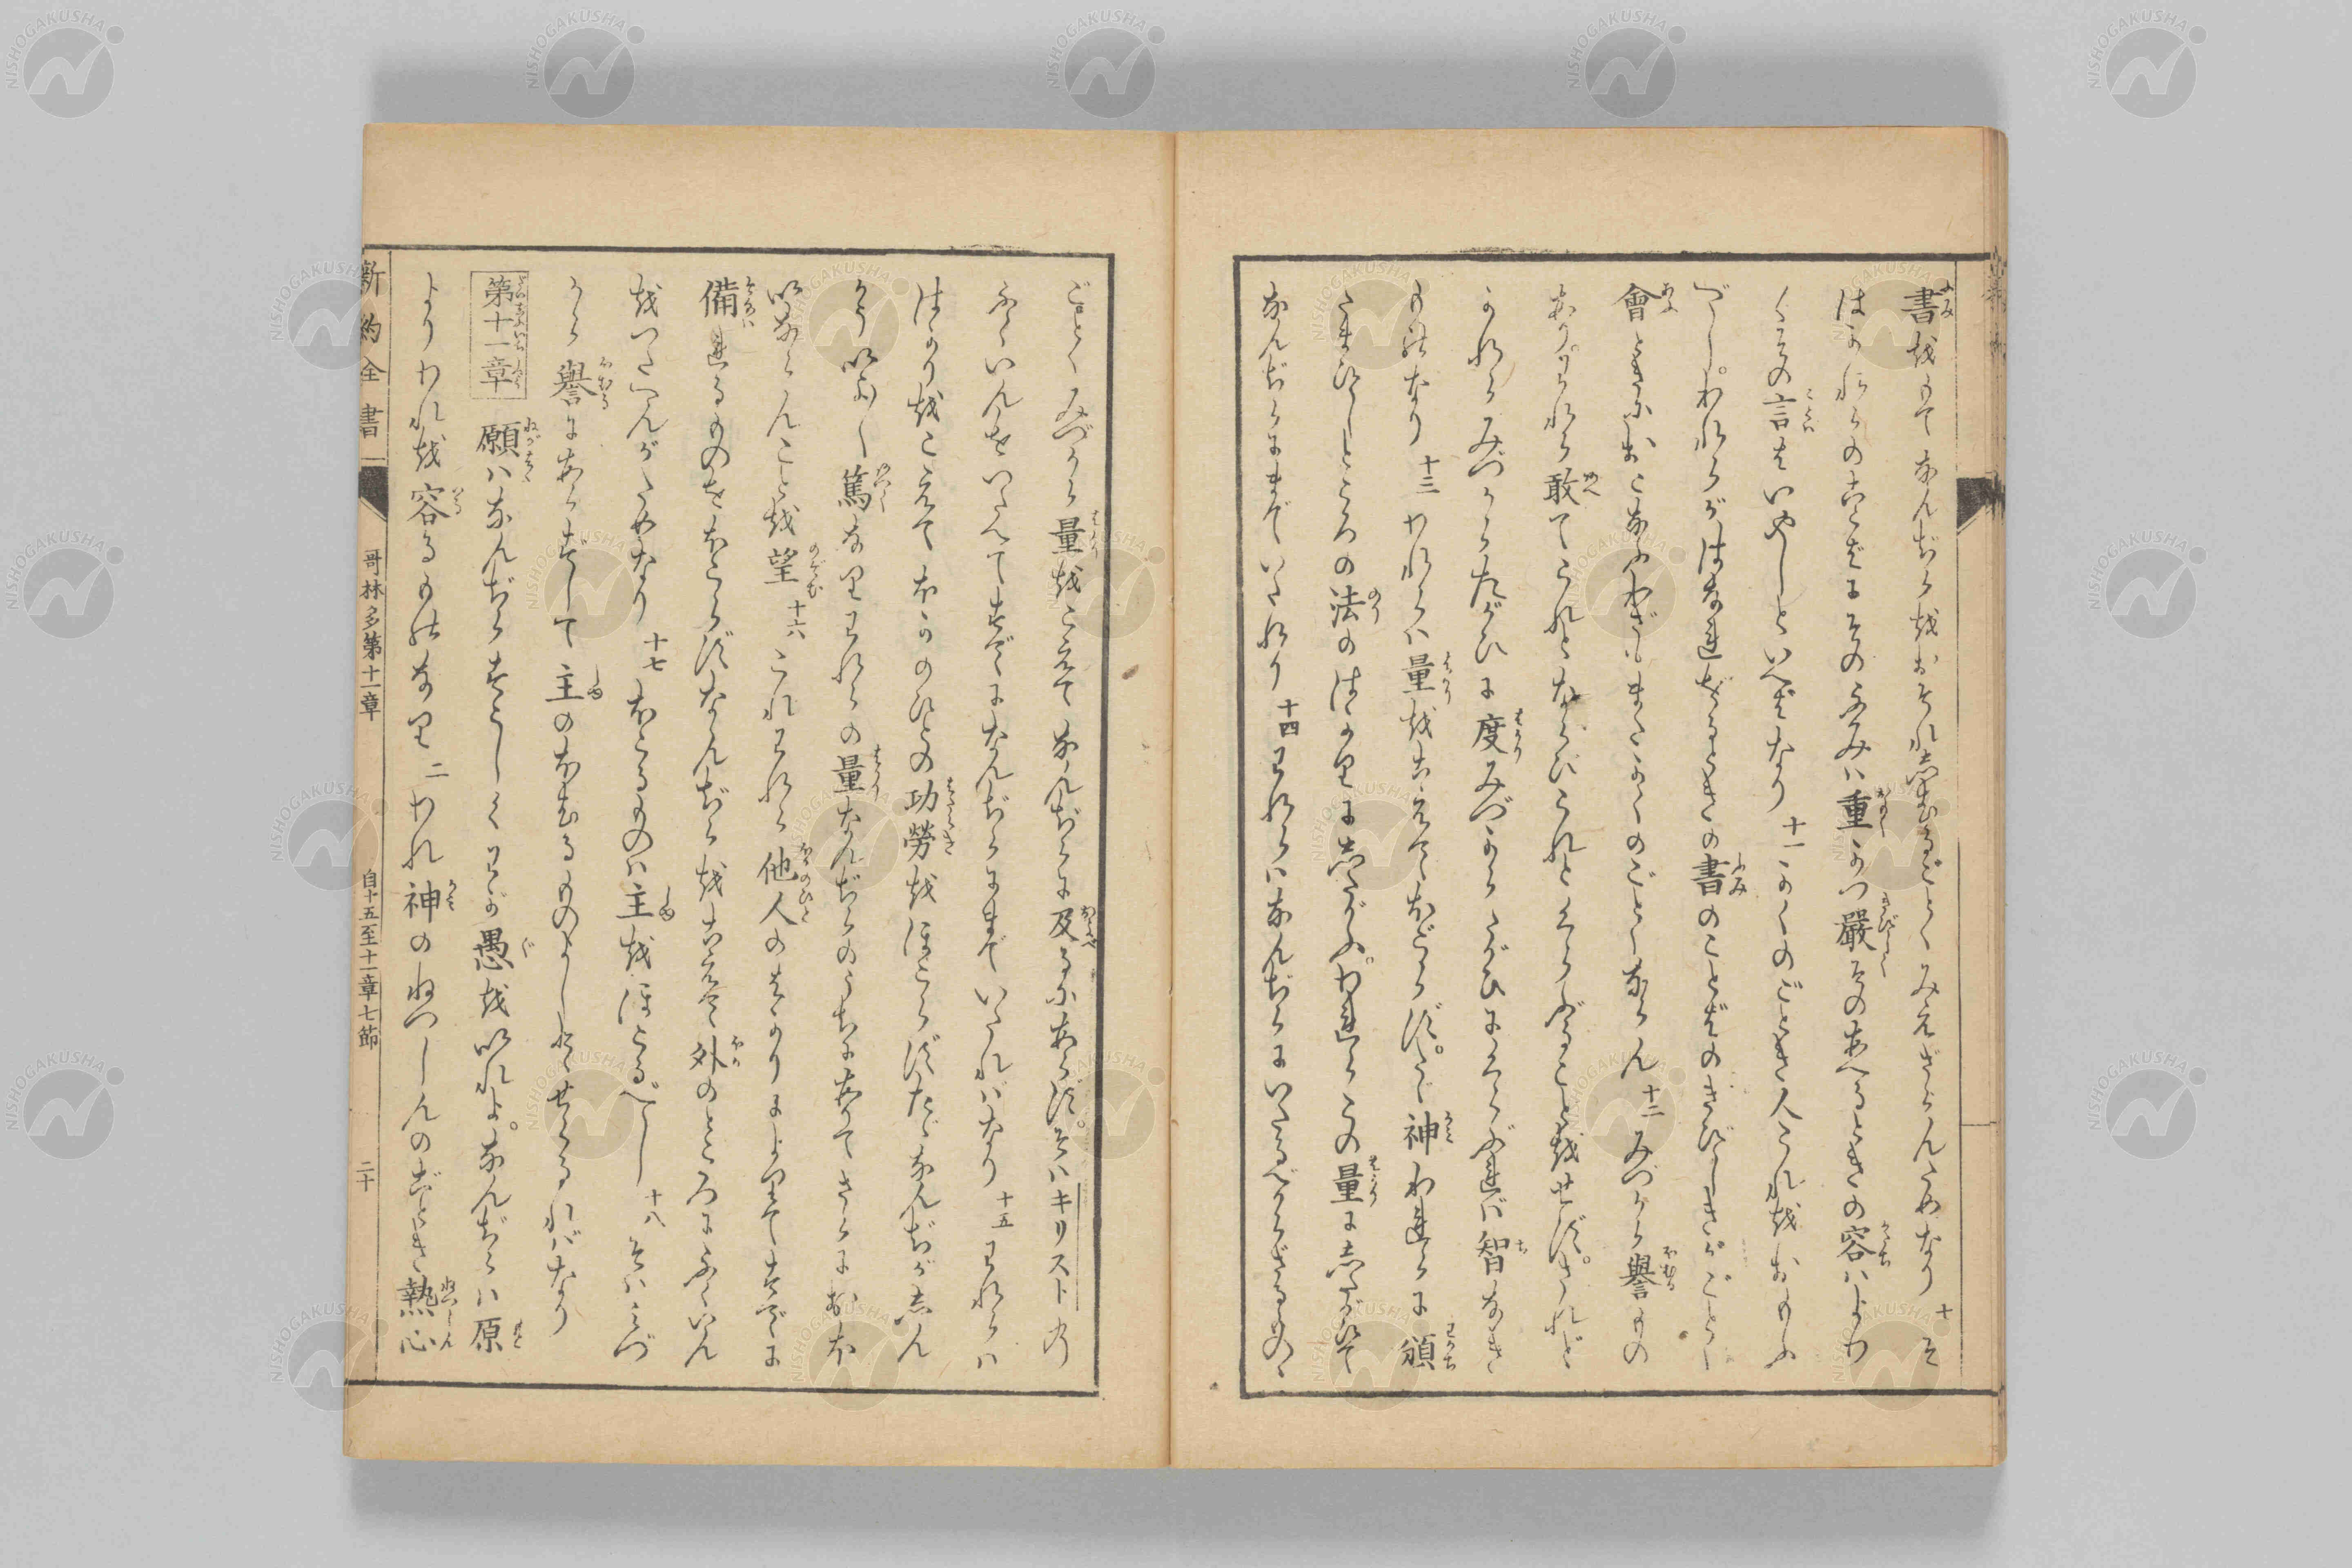 書をもてなんぢらをおそれしむるごとくみえざらんためなり 十 そ
はかれらのことばにその ふみハ重かつ嚴その あへるときの容ハよわ
くその言はいやしといへばなり 十一 かくのごとき人これをおもふ
べし。われらがはなれをるときの書のことばのきびしきがごとく
會ときにおこなふわざもまたかくのごとくならん 十二 みづから譽もの
あり。われら敢てこれとならびこれとくらぶることをせず。されど
かれらみづからたがひに度みづからたがひにくらぶれば智なき
ものなり 十三 われらハ量をこえてほこらず。たゞ神われらに頒
たまひしところの法のはかりにしたがふ。われらこの量にしたがひて
なんぢらにまでいたれり 十四 われらハなんぢらにいたるべからざるものゝ
ごとくみづから量をこえてなんぢらに及るにあらず。そハキリストの
ふくいんをつたへてすでになんぢらにまでいたれバなり 十五 われらハ
はかりをこえてほかのひとの功勞をほこらずたゞなんぢがしん
かういよ〱篤なりわれらの量なんぢらのうちにありてさらにおほ
いならんことを望 十六 これわれら他人のはかりによりてすでに
備たるものをほこらずなんぢらをこえて外のところにふくいん
をつたへんがためなり 十七 ほこるものハ主をほこるべし 十八 そハみづ
から譽にあらずして主のほむるものよしとせらるればなり
第十一章 願ハなんぢらすこしくわが愚をいれよ。なんぢらハ原
よりわれを容るものなり 二 われ神のねつしんのごとき熱心
新約全書 哥林多第十一章 自十五至十一章七節 二十